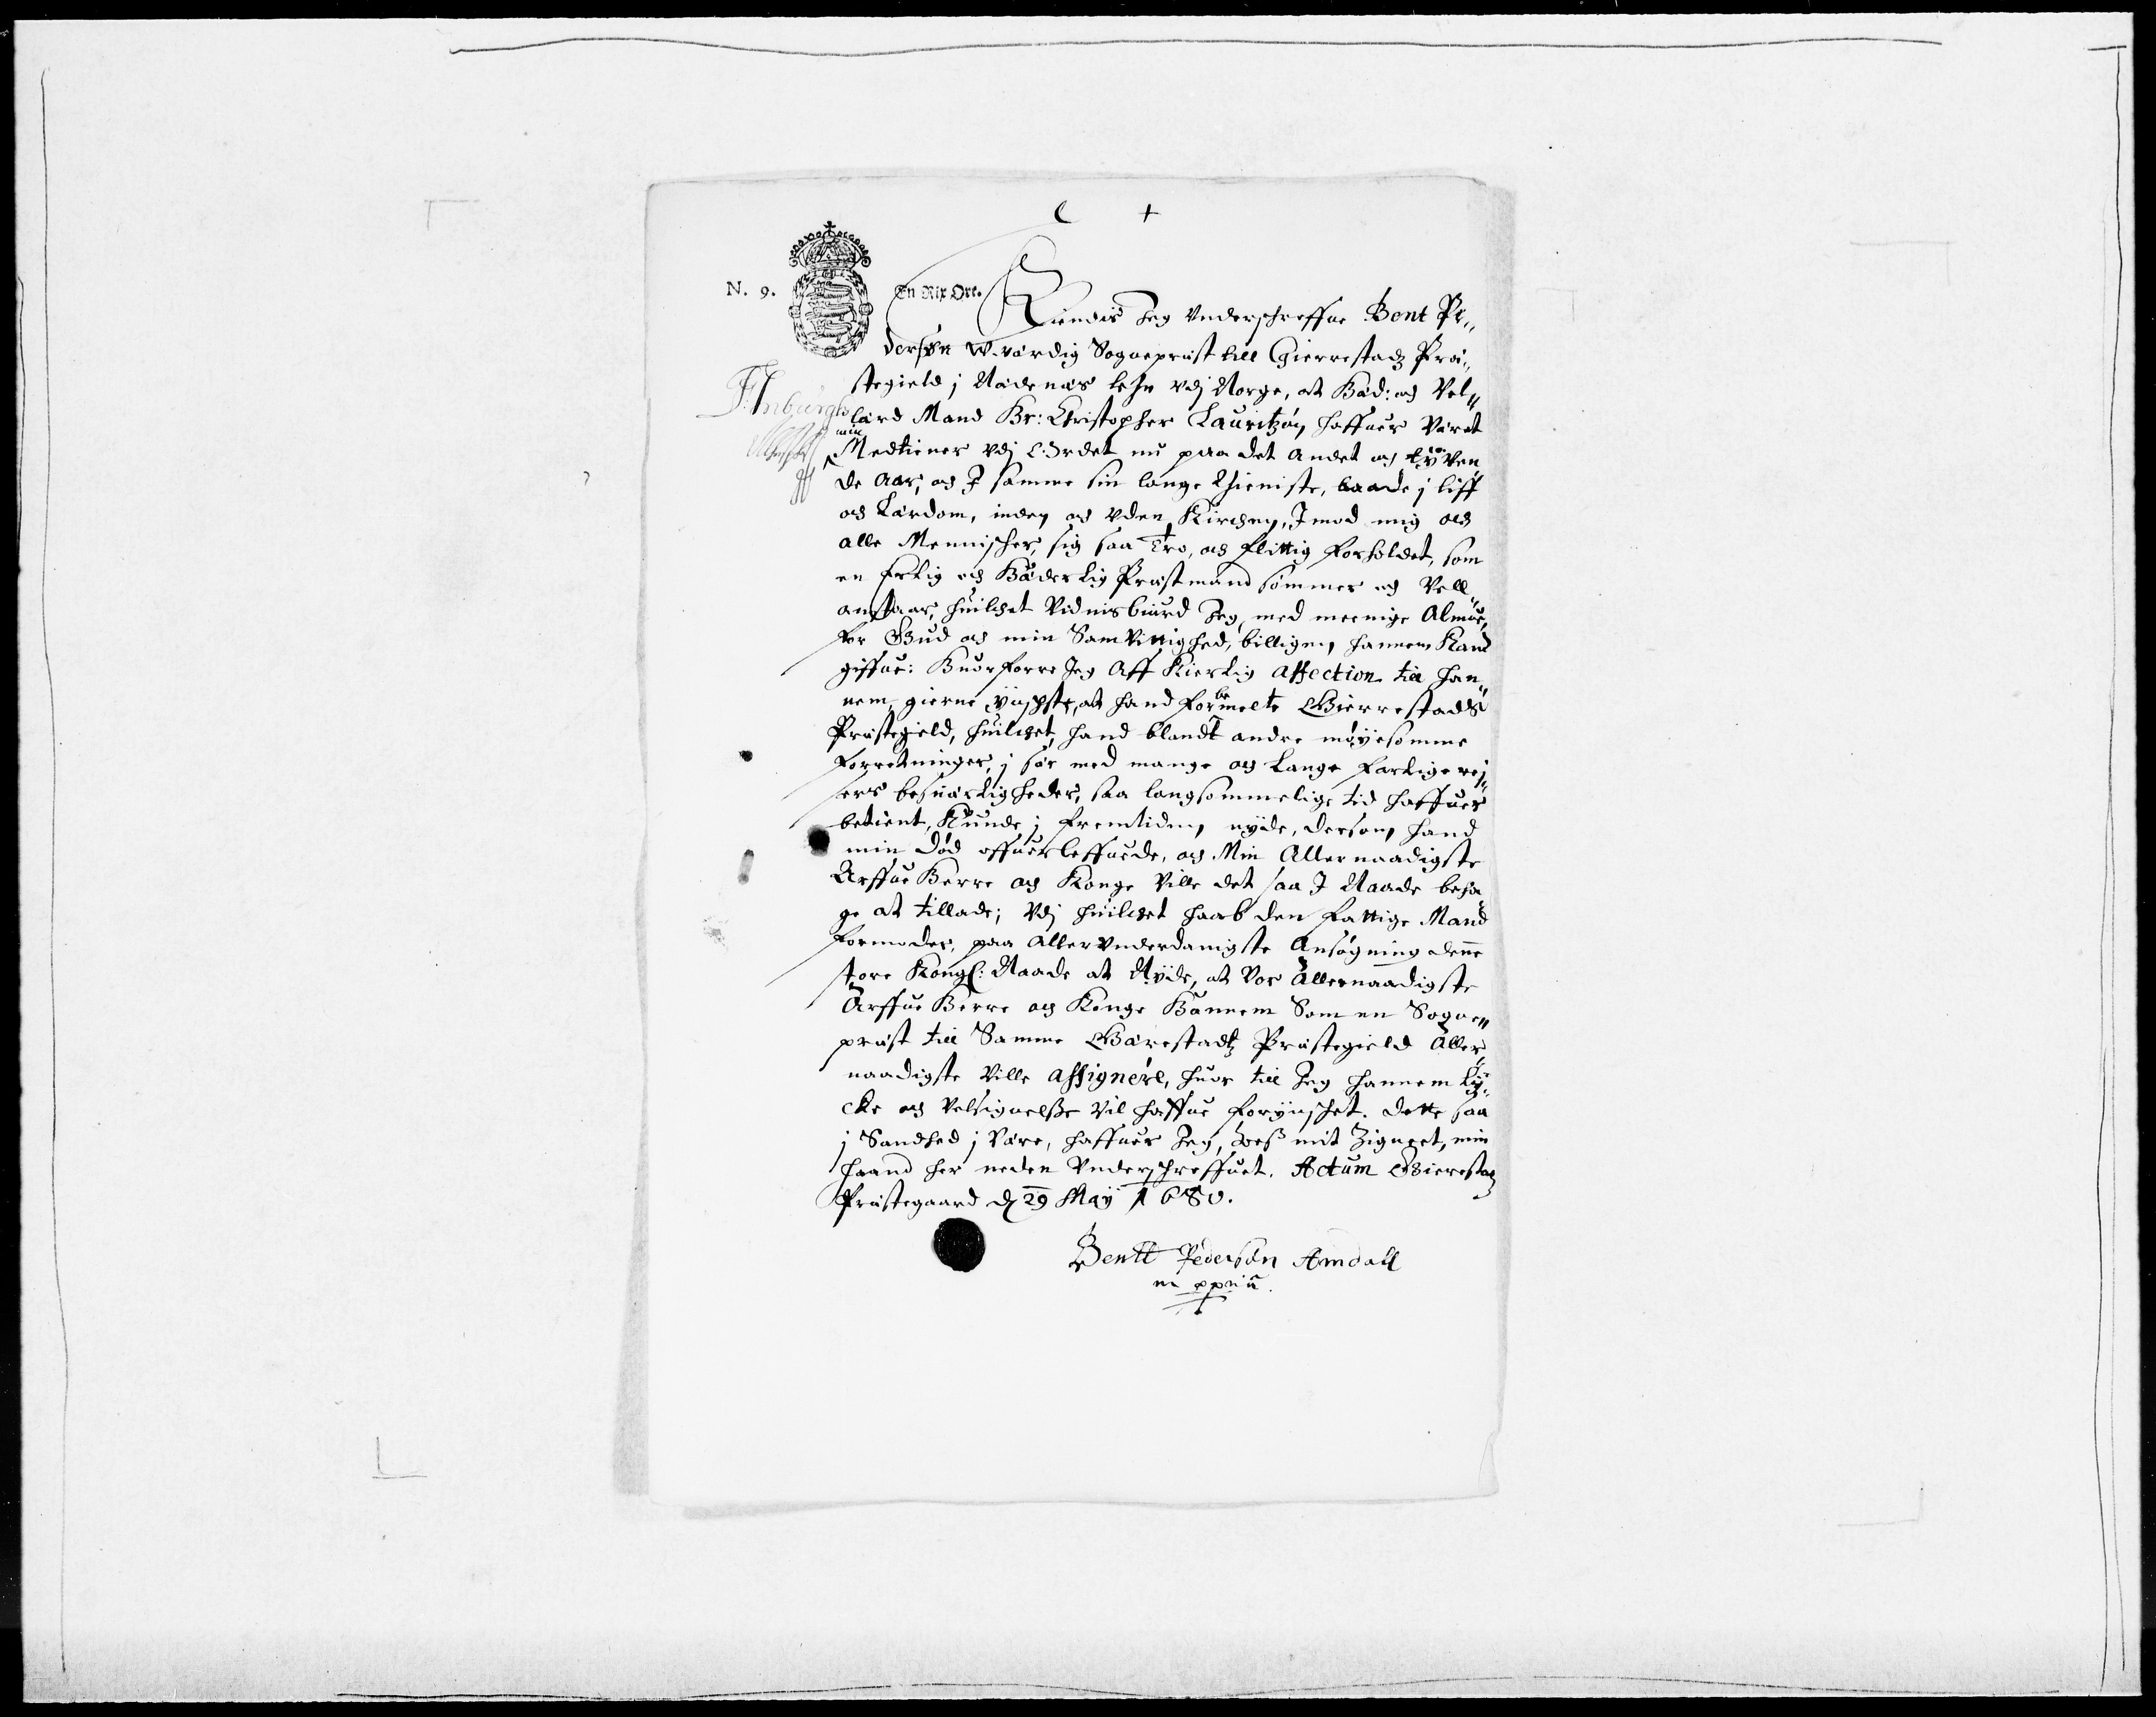 N. 9. En Rix Ort.
Kiendis Jeg Underschreffne Bent Pe„
dersøn W-værdig Sogneprest till Gierrestadz Præ„
stegield j Nædenæs lehn vdj Norge, at Hæd: og Vel„
lærd Mand Hr: Christopher Lauritzøn haffuer Været
min
Medtiener vdj Ordet nu paa det Andet og tyven
de Aar, og J samme sin lange Thieniste, baade j liff
og Lærdom, inden og vden Kirchen, Jmod mig och
alle Mennischer, sig saa Tro, og flittig forholdet, som
en Erlig och Hæderlig Præstmand sømmer og Vell„
anstaar, huilchet Vidnisbiurd Jeg, med meenige Almue,
for Gud og min Samvittighed, billigen hannem Kand
giffue: Huorforre Jeg Aff Kierlig Affection till han„
nem, gierne ÿnschte, at hand forbemelte Gierrestadz
Præstegield, huilchet hand blandt andre møÿesomme
forretninger, j sær med mange og Lange farlige rej„
sers besuærligheder, saa langsommelige tid haffuer
betient, Kunde j fremtiden nyde, dersom hand
min død offuerleffuede, og Min Allernaadigste
Arffue Herre og Konge Ville det saa J Naade beha„
ge at tillade; Vdj huilchet haab den fattige Mand
formoder, paa Allervnderdanigste Ansøgning denne
store Kongl: Naade at Nÿde, at Vor Allernaadigste
Arffue Herre og Konge Hannem Som en Sogne„
præst till Samme Gierestadtz Præstegield Aller„
naadigste Ville Assignére, huor till Jeg hannem Lÿ„
cke og Velsignelsse Vil haffue forÿnschet. Dette saa
j Sandhed j Være, haffuer Jeg, hoes mit Zignet, min
haand her neden Underschreffuet. Actum Gierestadz
Præstegaard d 29 Maÿ 1680.
Bentt Pedersøn Amdall
m ppriâ.